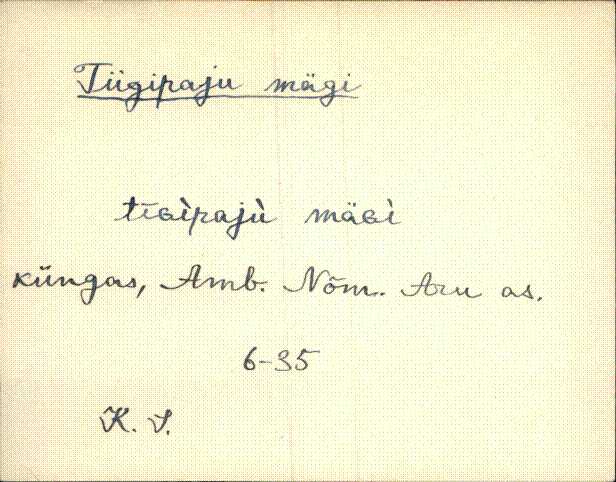 Tiigipaju mägi
tīɢìpajù mäɢì
küngas, Amb. Nõm. Aru as.
6-35
K. S.